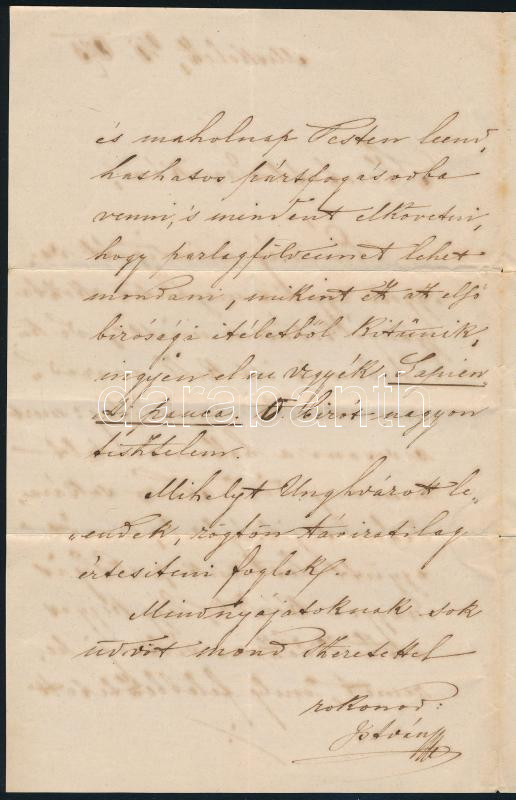 és maholnap Pesten leend,
hathatos pártfogásodba
venni, 's mindent elkövetni,
hogy parlagföldeimet lehet
mondani, mikint ez az első
birósági itéletből kitűnik,
ingyen el ne vegyék. Sapien
ti pauca.
nagyon
tisztelem.
Mihelyt Unghvárott le-
"endek, rögtön táviratilag
értesíteni foglak.
Mindnyájatoknak sok
üdvöt mond szeretettel
rokonod:
István
darabanth